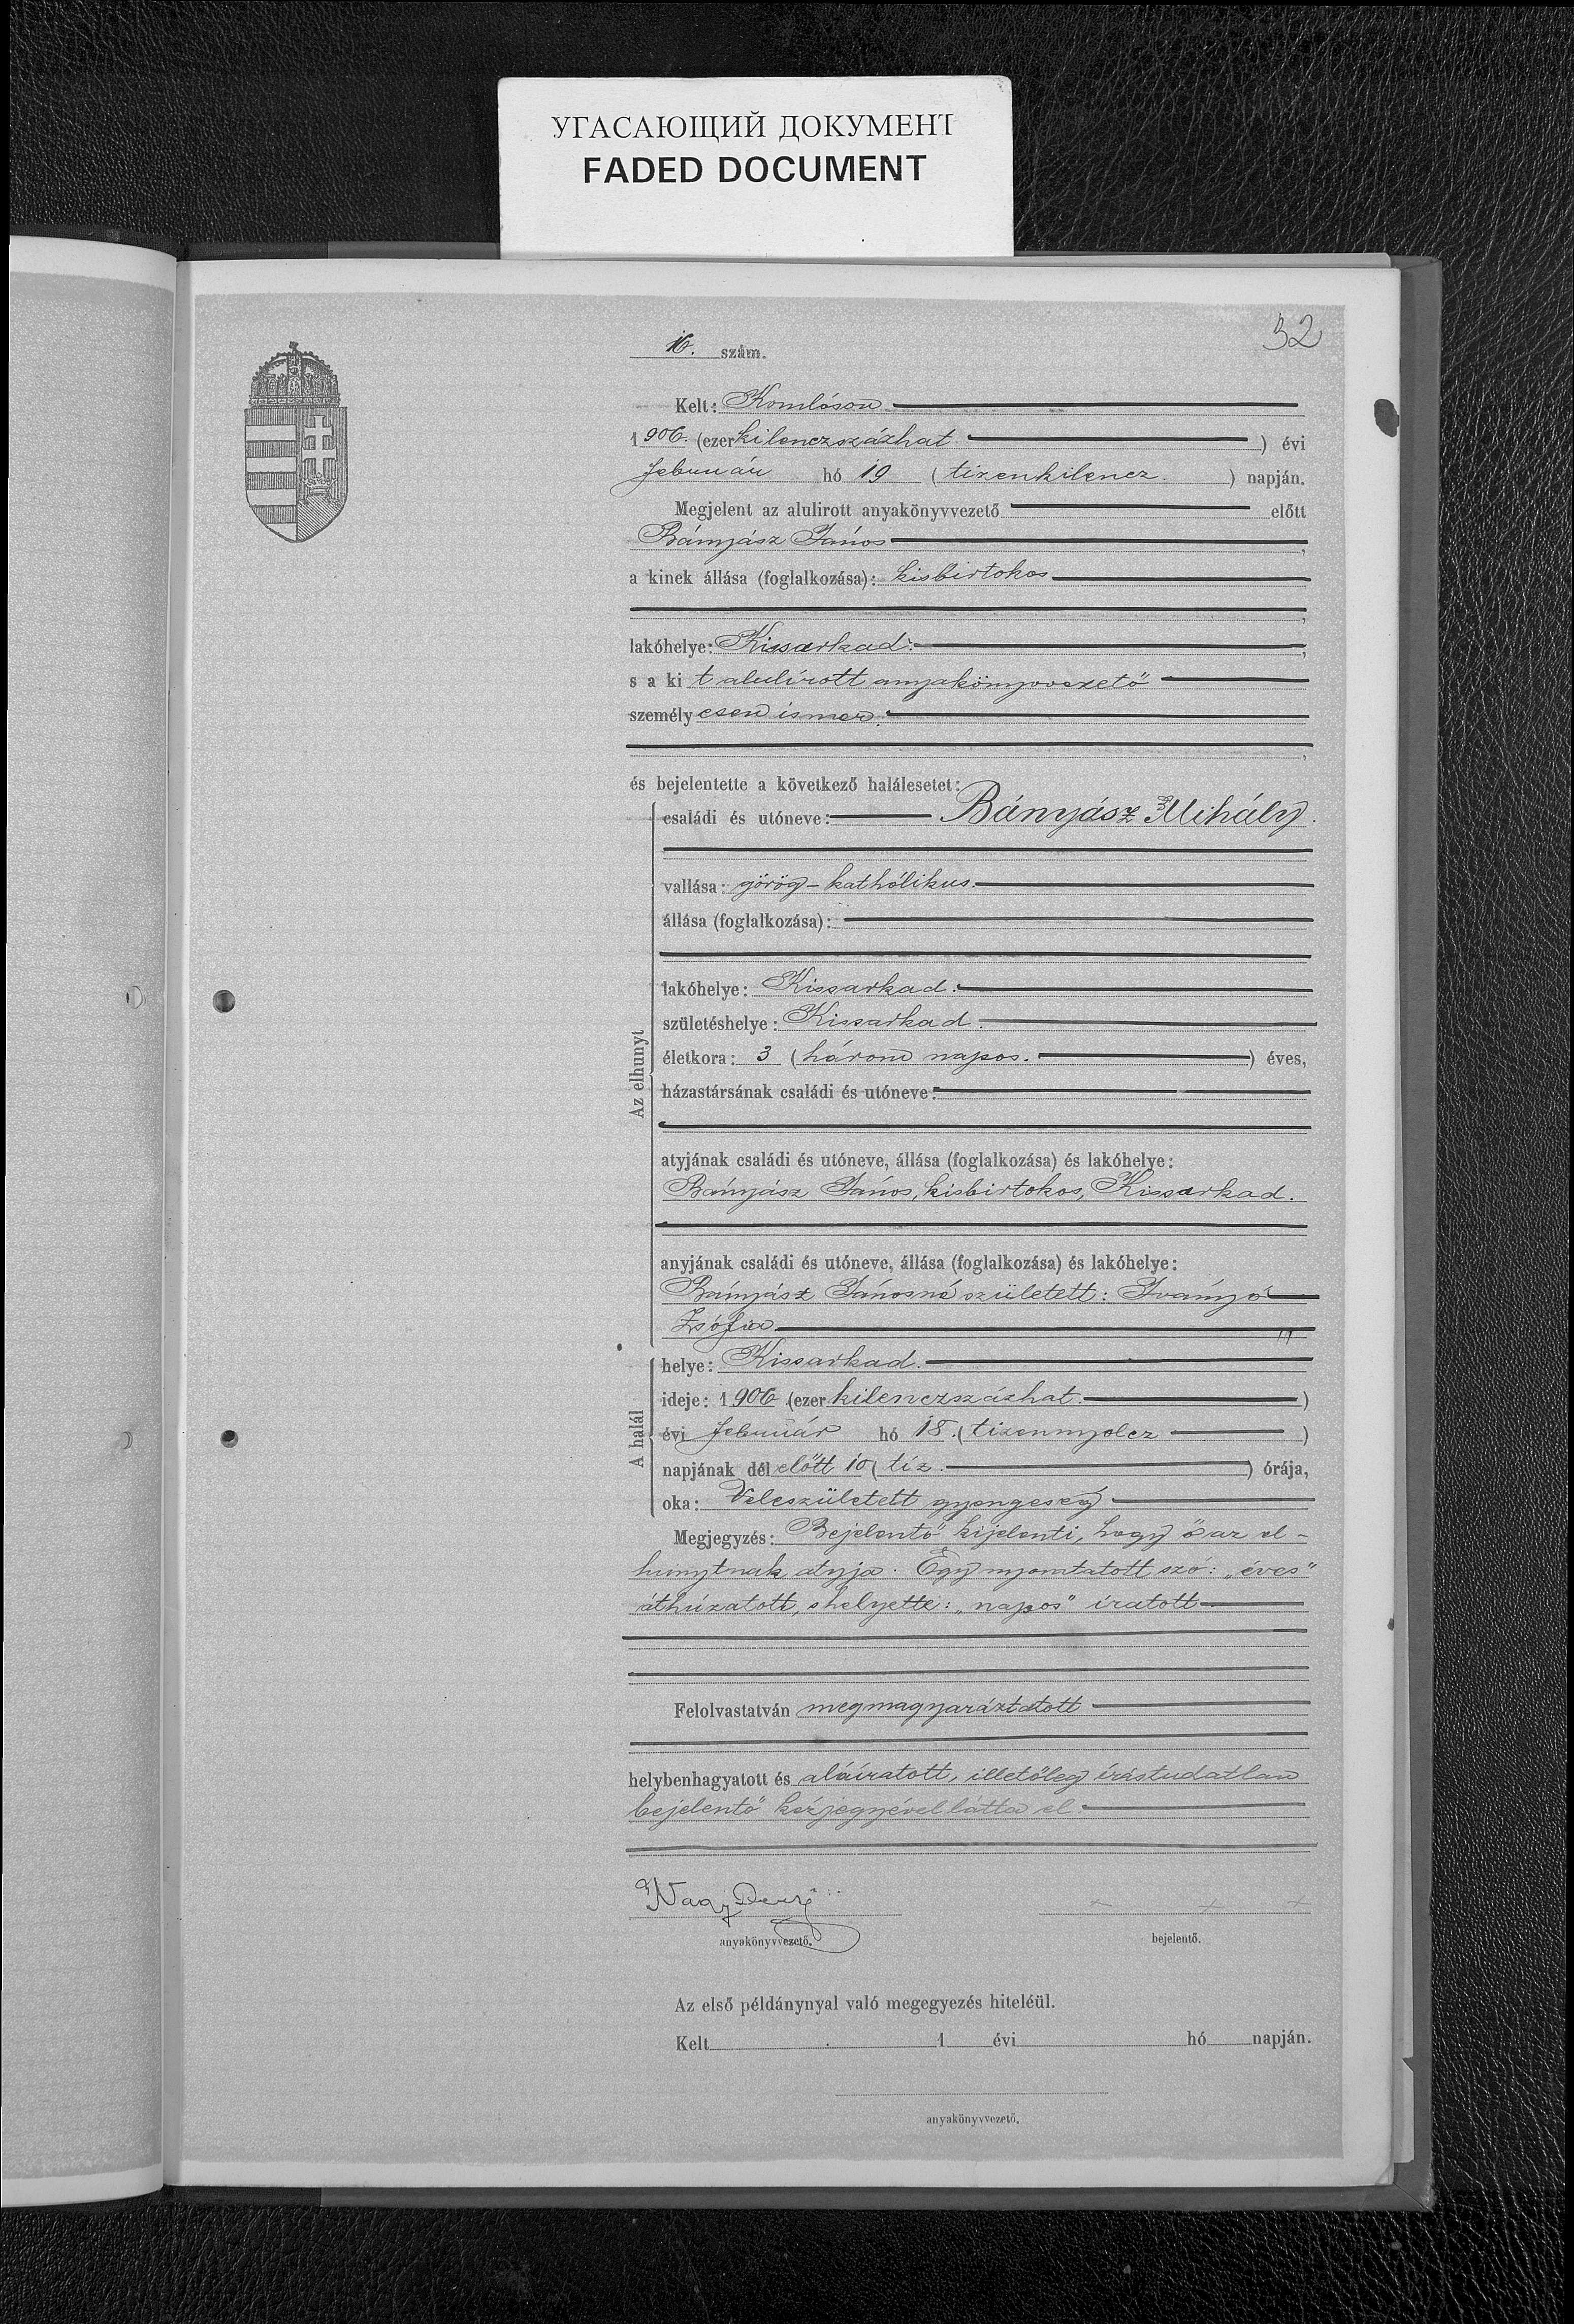 УГАСАЮЩИЙ ДОКУМЕНТ
FADED DOCUMENT
32
16. szám.
Kelt: Komlóson
1906. (ezer kilenczszázhat) évi
február hó 19 (tizenkilencz.) napján.
Megjelent az alulirott anyakönyvvezető előtt
Bányász János,
a kinek állása (foglalkozása): kisbirtokos
lakóhelye: Kissarkad.,
s a kit alulírott anyakönyvvezető
személyesen ismer.,
és bejelentette a következő halálesetet:
családi és utóneve: Bányász Mihály.
vallása: görög-kathólikus.
állása (foglalkozása):
lakóhelye: Kissarkad.
születéshelye: Kissarkad.
Az elhunyt
életkora: 3 (három napos.) éves,
házastársának családi és utóneve:
atyjának családi és utóneve, állása (foglalkozása) és lakóhelye:
Bányász János, kisbirtokos, Kissarkad.
anyjának családi és utóneve, állása (foglalkozása) és lakóhelye:
Bányász Jánosné született: Iványó
Zsófia
helye: Kissarkad.
ideje: 1906 (ezer kilenczszázhat.)
A halál
évi február hó 18. (tizennyolcz)
napjának dél előtt 10 (tíz.) órája,
oka: Veleszületett gyengeség
Megjegyzés: Bejelentő kijelenti, hogy ő az el-
hunytnak atyja. Egy nyomtatott szó: „éves"
áthúzatott, s helyette: „napos" íratott
Felolvastatván megmagyaráztatott
helybenhagyatott és aláíratott, illetőleg írástudatlan
bejelentő kézjegyével látta el.
Nagy
+ + +
anyakönyvvezető. bejelentő.
Az első példánynyal való megegyezés hiteléül.
Kelt 1 évi hó napján.
anyakönyvvezető.